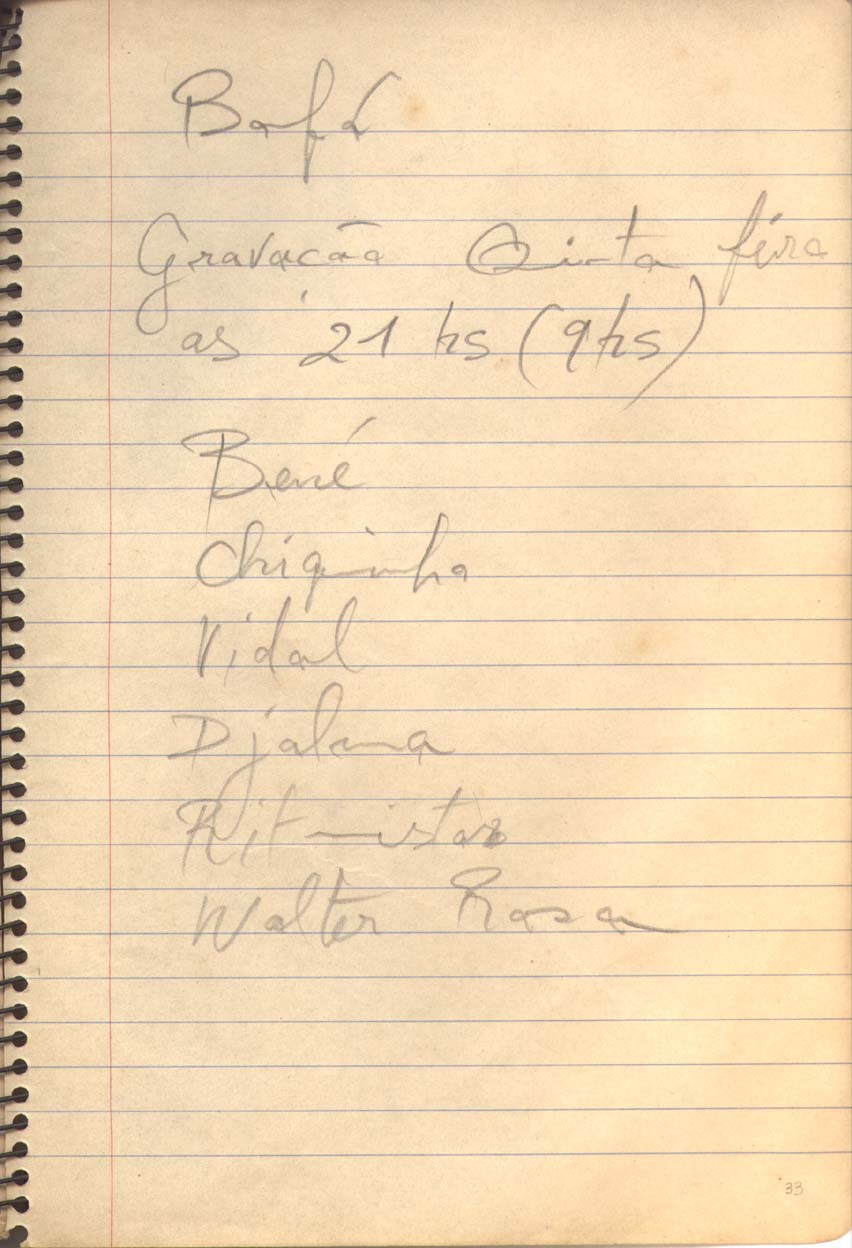 Bonfá
Gravacão Quinta feira
as 21 hs (9hs)
Bené
Chiquinho
Vidal
Djalma
Ritmistas
Walter Rosa
33